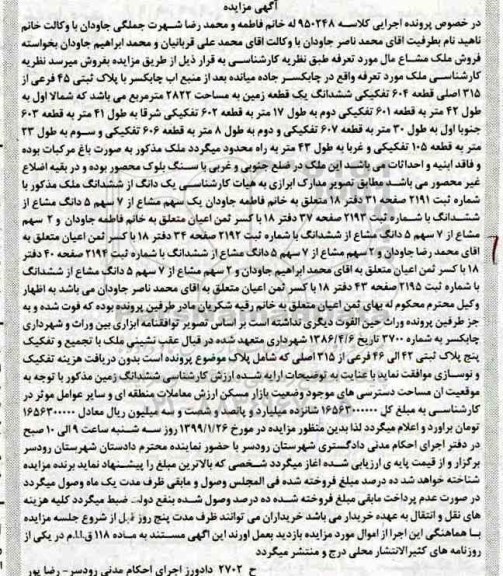 آگهی مزایده
در خصوص پرونده اجرایی کلاسه ۹۵۰۲۴۸ له خانم فاطمه و محمد رضا شهرت جملگی جاودان با وکالت خانم
ناهید نام بطرفیت اقای محمد ناصر جاودان با وکالت اقای محمد علی قربانیان و محمد ابراهیم جاودان بخواسته
فروش ملک مشاع مال مورد تعرفه طبق نظریه کارشناسی به قرار ذیل از طریق مزایده بفروش میرسد نظریه
کارشناسی ملک مورد تعرفه واقع در چابکسر جاده میانده بعد از منبع اب چابکسر با پلاک ثبتی ۴۵ فرعی از
۳۱۵ اصلی قطعه ۶۰۴ تفکیکی ششدانگ یک قطعه زمین به مساحت ۲۸۲۲ مترمربع می باشد که شمالا اول به
طول ۴۲ متر به قطعه ۶۰۱ تفکیکی دوم به طول ۱۷ متر به قطعه ۶۰۲ تفکیکی شرقا به طول ۴۱ متر به قطعه ۶۰۳
جنوبا اول به طول ۳۰ متر به قطعه ۶۰۷ تفکیکی و دوم به طول ۸ متر به قطعه ۶۰۶ تفکیکی و سوم به طول ۲۳
متر به قطعه ۱۰۵ تفکیکی و غربا به طول ۴۳ متر به راه محدود میگردد ملک مذکور به صورت باغ مرکبات بوده
و فاقد ابنیه و احداثات می باشد این ملک در ضلع جنوبی و غربی با سنگ بلوک محصور بوده و در بقیه اضلاع
غیر محصور می باشد مطابق تصویر مدارک ابرازی به هیات کارشناسی یک دانگ از ششدانگ ملک مذکور با
شماره ثبت ۲۱۹۱ صفحه ۳۱ دفتر ۱۸ متعلق به خانم فاطمه جاودان یک سهم مشاع از ۷ سهم ۵ دانگ مشاع از
ششدانگ با شماره ثبت ۲۱۹۳ صفحه ۳۷ دفتر ۱۸ با کسر ثمن اعیان متعلق به خانم فاطمه جاودان و ۲ سهم
مشاع از ۷ سهم ۵ دانگ مشاع از ششدانگ با شماره ثبت ۲۱۹۲ صفحه ۳۴ دفتر ۱۸ با کسر ثمن اعیان متعلق به
اقای محمد رضا جاودان و ۲ سهم مشاع از ۷ سهم ۵ دانگ مشاع از ششدانگ با شماره ثبت ۲۱۹۴ صفحه ۴۰ دفتر
۱۸ با کسر ثمن اعیان متعلق به اقای محمد ابراهیم جاودان و ۲ سهم مشاع از ۷ سهم ۵ دانگ مشاع از ششدانگ
با شماره ثبت ۲۱۹۵ صفحه ۴۳ دفتر ۱۸ با کسر ثمن اعیان متعلق به اقای محمد ناصر جاودان می باشد به اظهار
وکیل محترم محکوم له بهای ثمن اعیان متعلق به خانم رقیه شکریان مادر طرفین پرونده بوده که فوت شده و به
جز طرفین پرونده وراث حین الفوت دیگری نداشته است بر اساس تصویر توافقنامه ابرازی بین وراث و شهرداری
چابکسر به شماره ۳۷۰۰ تاریخ ۱۳۸۶/۴/۶ شهرداری متعهد شده در قبال عقب نشینی ملک با تجمیع و تفکیک
پنج پلاک ثبتی ۴۲ الی ۴۶ فرعی از ۳۱۵ اصلی که شامل پلاک موضوع پرونده است بدون دریافت هزینه تفکیک
و نوسازی موافقت نماید با عنایت به توضیحات ارایه شده ارزش کارشناسی ششدانگ زمین مذکور با توجه به
موقعیت ان مساحت دسترسی های موجود وضعیت بازار مسکن ارزش معاملات منطقه ای و سایر عوامل موثر در
کارشناسی به مبلغ کل ۱۶۵۶۳۰۰۰۰۰۰ شانزده میلیارد و پانصد و شصت و سه میلیون ریال معادل ۱۶۵۶۳۰۰۰۰۰
تومان براورد و اعلام میگردد لذا بدین منظور مزایده در مورخ ۱۳۹۹/۱/۲۶ روز سه شنبه ساعت ۹ الی ۱۰ صبح
در دفتر اجرای احکام مدنی دادگستری شهرستان رودسر با حضور نماینده محترم دادستان شهرستان رودسر
برگزار و از قیمت پایه ی ارزیابی شده اغاز میگردد شخصی که بالاترین مبلغ را پیشنهاد نماید برنده مزایده
شناخته خواهد شد ده درصد مبلغ فروخته شده فی المجلس وصول و مابقی ظرف مدت یک ماه وصول میگردد
در صورت عدم پرداخت مابقی مبلغ فروخته شده ده درصد وصول شده بنفع دولت ضبط میگردد کلیه هزینه
های نقل و انتقال به عهده خریدار می باشد خریداران می توانند ظرف مدت پنج روز قبل از شروع جلسه مزایده
با هماهنگی این اجرا از اموال مورد مزایده بازدید بعمل اورند این اگهی مستند به ماده ۱۱۸ ق.ا.ا.م در یکی از
روزنامه های کثیرالانتشار محلی درج و منتشر میگردد
ح ۲۷۰۲ دادورز اجرای احکام مدنی رودسر- رضا پور